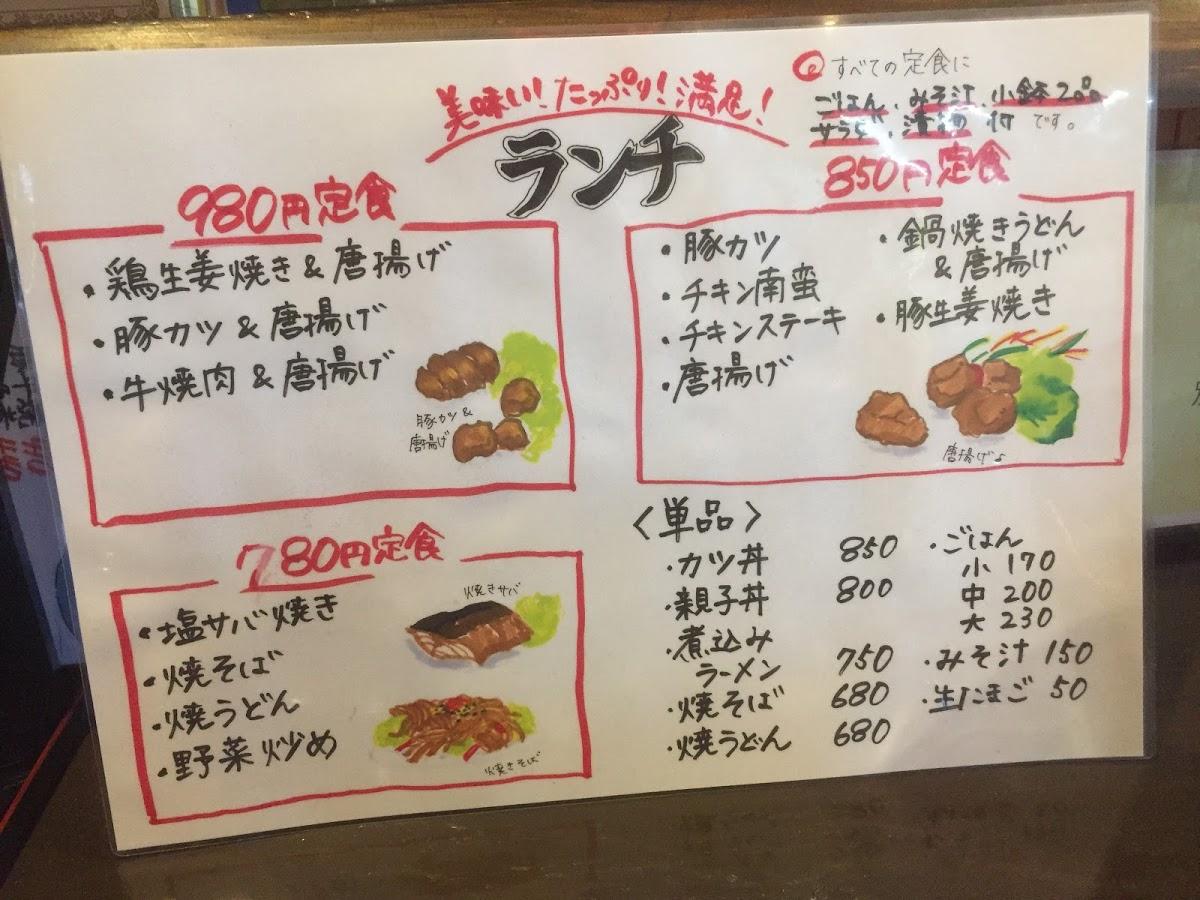 美味い!たっぷり!満足!
ランチ
すべての定食に
ごはん、みそ汁、小鉢2品
サラダ、漬物 付 です。
980円定食
・鶏生姜焼き&唐揚げ
・豚カツ&唐揚げ
・牛焼肉&唐揚げ
豚カツ&
唐揚げ
850円定食
・豚カツ
・チキン南蛮
・チキンステーキ
・唐揚げ
・鍋焼きうどん
&唐揚げ
・豚生姜焼き
唐揚げ♪
780円定食
・塩サバ焼き
・焼そば
・焼うどん
・野菜炒め
焼きサバ
焼きそば
〈単品〉
・カツ丼 850
・親子丼 800
・煮込み
ラーメン 750
・焼そば 680
・焼うどん 680
・ごはん
小 170
中 200
大 230
・みそ汁 150
・生たまご 50